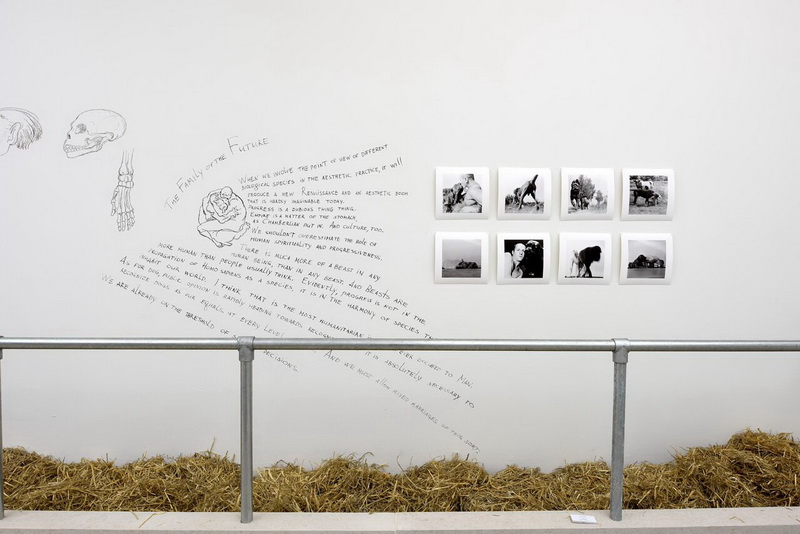 THE FAMILY OF THE FUTURE
WHEN WE INVOLVE THE POINT OF VIEW OF DIFFERENT
BIOLOGICAL SPECIES IN THE AESTHETIC PRACTICE, IT WILL
PRODUCE A NEW RENAISSANCE AND AN AESTHETIC BOOM
THAT IS HARDLY IMAGINABLE TODAY.
PROGRESS IS A DUBIOUS THING THING.
EMPIRE IS A MATTER OF THE STOMACH,
AS CHAMBERLAIN PUT IT. AND CULTURE, TOO.
WE SHOULDN'T OVERESTIMATE THE ROLE OF
HUMAN SPIRITUALITY AND PROGRESSIVENESS.
THERE IS MUCH MORE OF A BEAST IN ANY
HUMAN BEING, THAN IN ANY BEAST. AND BEASTS ARE
MORE HUMAN THAN PEOPLE USUALLY THINK. EVIDENTLY, PROGRESS IS NOT IN THE
OF HOMO AS A SPECIES, IT IS IN THE HARMONY OF SPECIES THAT
INHABIT OUR WORLD. I THINK THAT IS THE MOST HUMANITARIAN TO MAN.
AS FOR DOGS, PUBLIC OPINION IS RAPIDLY HEADING TOWARDS IT IS ABSOLUTELY NECESSARY TO
RECOGNIZE DOGS AS OUR EQUALS AT EVERY LEVEL AND WE MUST ALLOW MIXED MARRIAGES OF THIS SORT.
WE ARE ALREADY ON THE THRESHOLD OF DECISIONS.